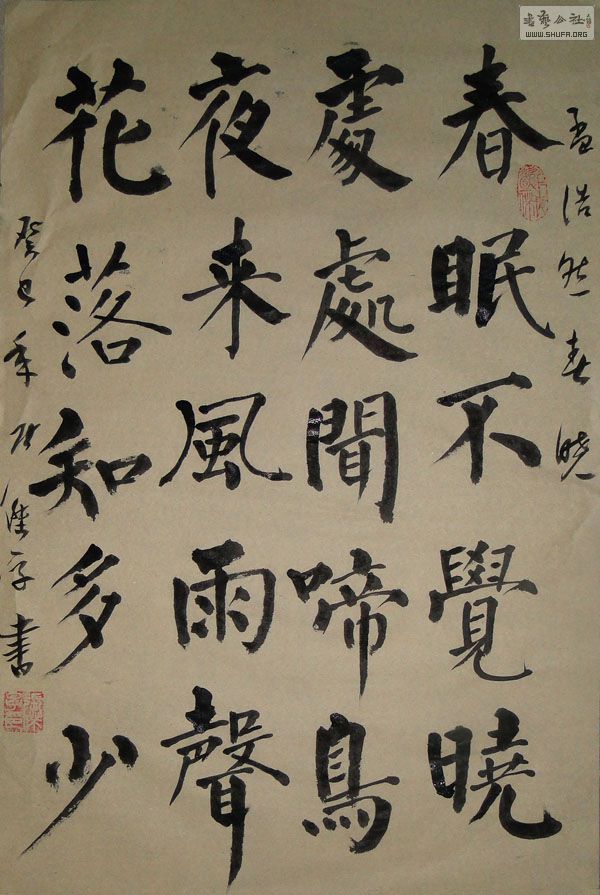 孟浩然春曉
春眠不覺曉
處處聞啼鳥
夜来風雨聲
花落知多少
癸巳年 書
書藝公社
WWW.SHUFA.ORG